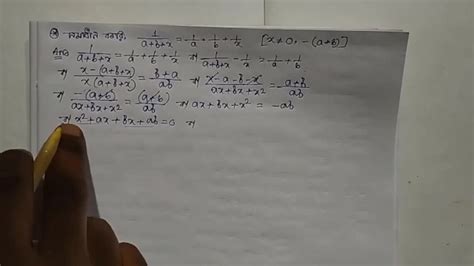 সমাধান করি, 1/(a+b+x) = 1/a + 1/b + 1/x [x ≠ 0, -(a+b)]
Ans 1/(a+b+x) = 1/a + 1/b + 1/x ⇒ 1/(a+b+x) - 1/x = 1/a + 1/b
⇒ (x-(a+b+x))/(x(a+b+x)) = (b+a)/ab ⇒ (x-a-b-x)/(ax+bx+x²) = (a+b)/ab
⇒ -(a+b)/(ax+bx+x²) = (a+b)/ab ⇒ ax+bx+x² = -ab
⇒ x²+ax+bx+ab = 0 ⇒